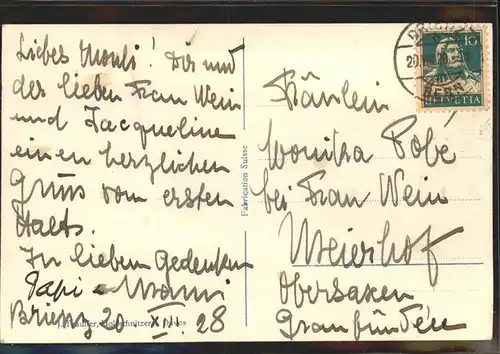 Liebes Mouli! Dir und
der lieben Frau Wein
und Jacqueline
einen herzlichen
Gruss vom ersten
Halt.
In lieben Gedenken
Papi - Mammi
Brienz 20 XII. 28
Fabrication Suisse
10
HELVETIA
Fräulein
Monika
bei Frau Wein
Meierhof
Obersaxen
Graubünden